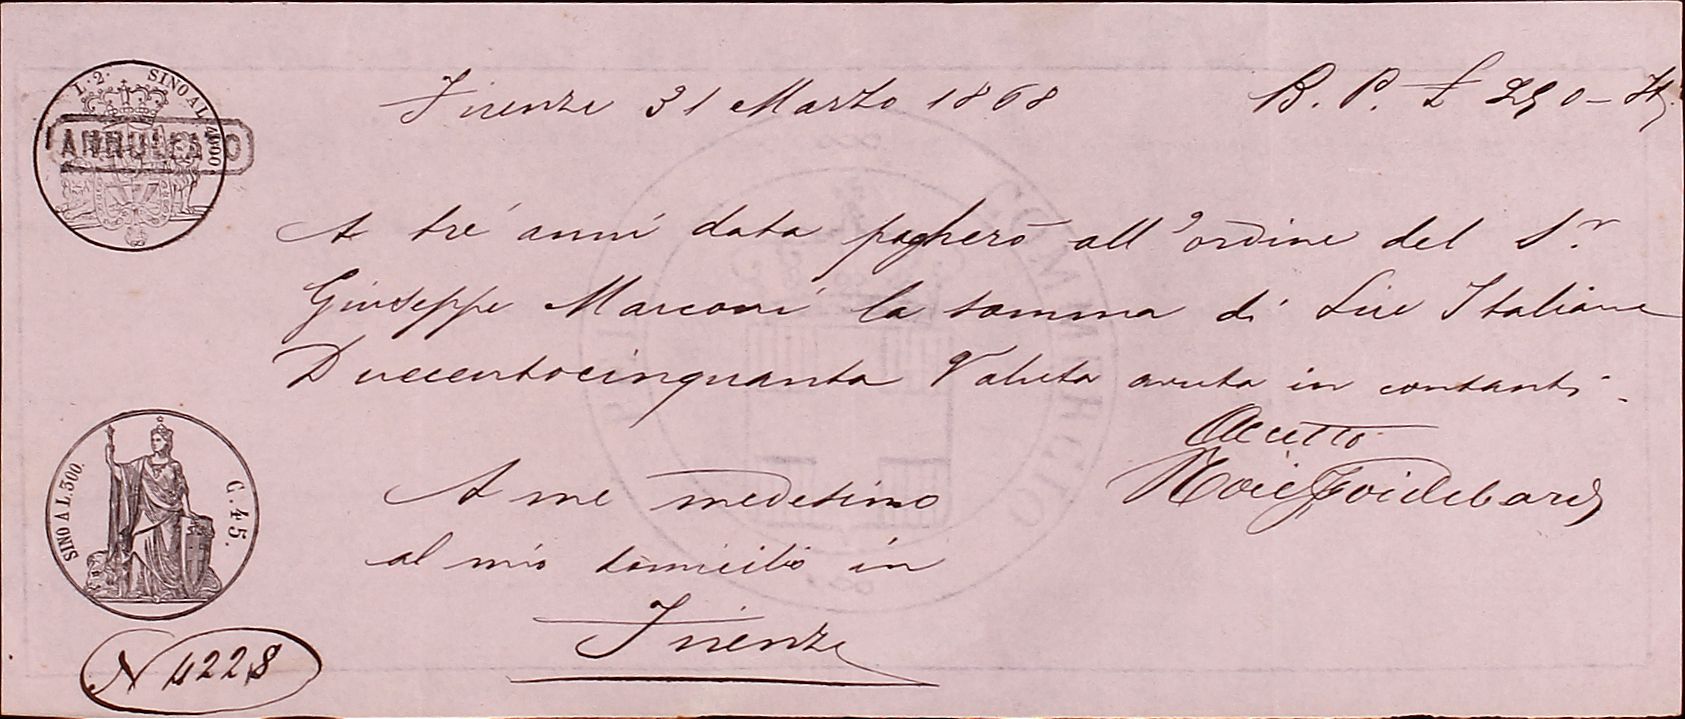 L. 2. SINO A L. 4000
ANNULLATO
Firenze 31 Marzo 1868
B. P. £ 250 –
A tré anni data pagherò all'ordine del S.r
Giuseppe Marconi la somma di Lire Italiane
Duecentocinquanta Valuta avuta in contanti.
Accetto
A me medesimo
al mio domicilio in
Firenze
SINO A L. 300. C. 45.
N 4228
COMMERCIO